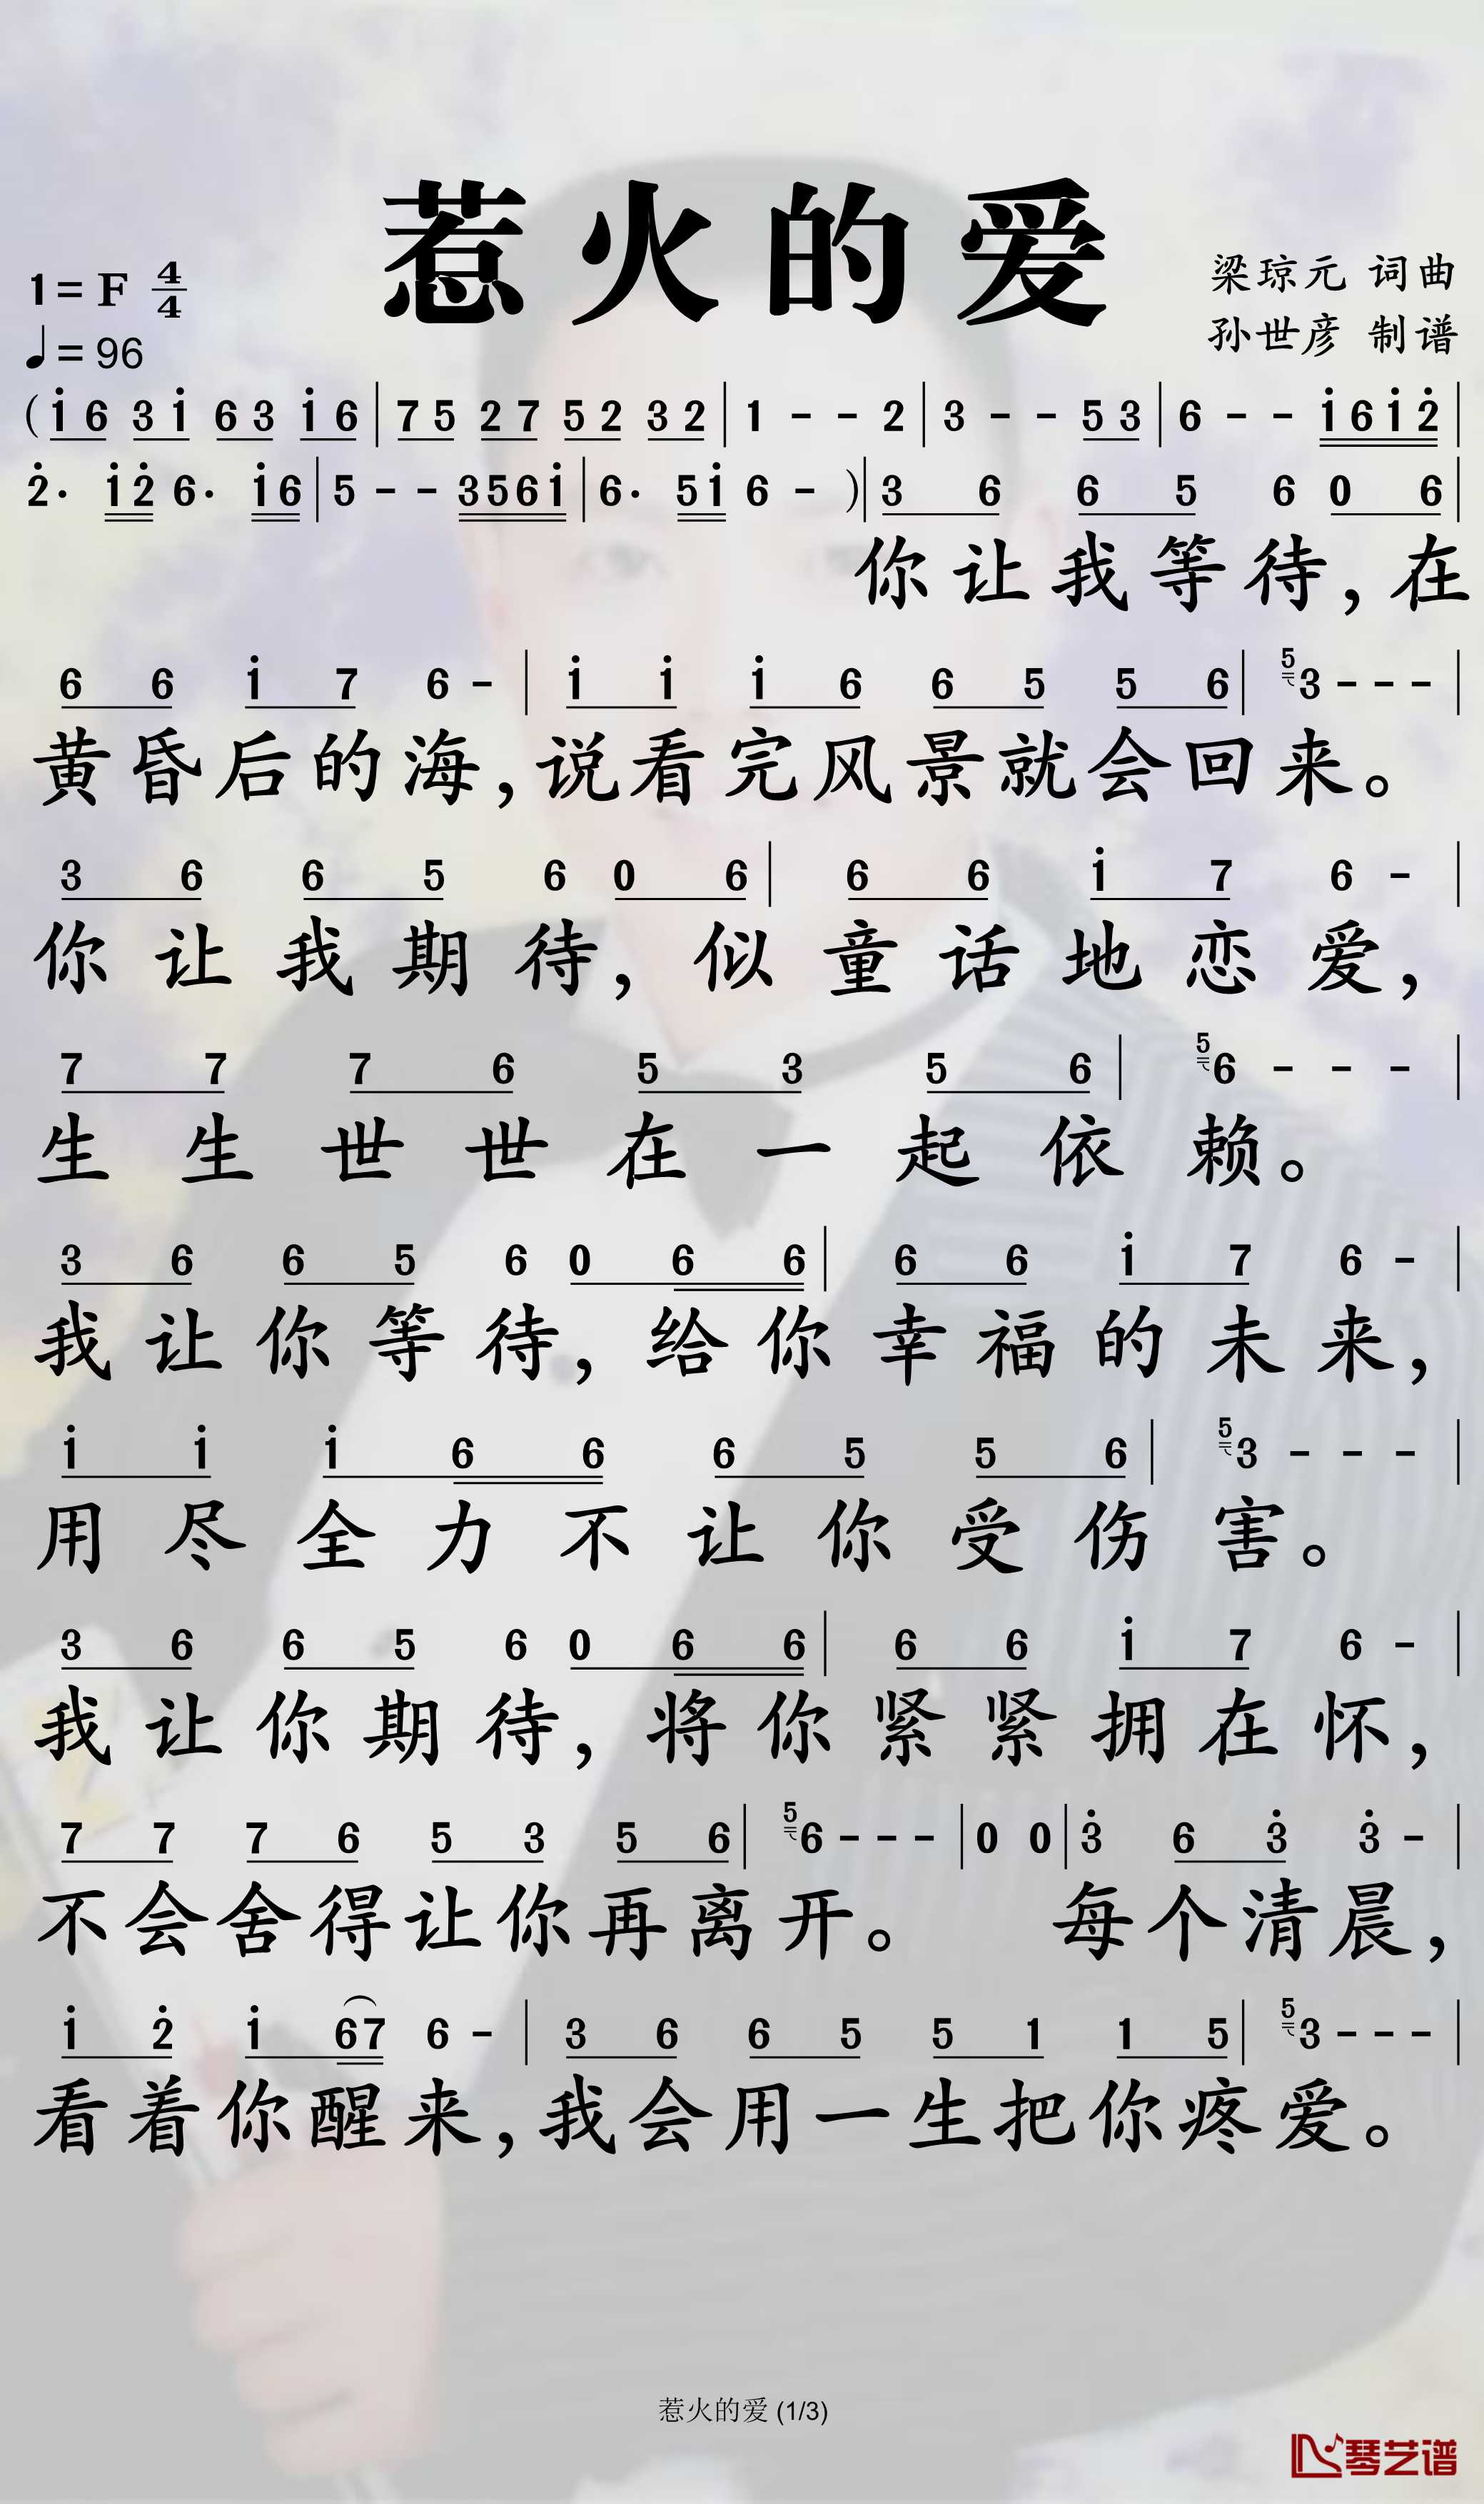 惹火的爱
1=F 4/4
♩=96
梁琼元 词曲
孙世彦 制谱
(i 6 3 i 6 3 i 6 | 7 5 2 7 5 2 3 2 | 1 - - 2 | 3 - - 5 3 | 6 - - i 6 i 2̇ |
2̇· i 2̇ 6· i 6 | 5 - - 3 5 6 i | 6· 5 i 6 - )| 3 6 6 5 6 0 6 |
你让我等待,在
6 6 i 7 6 - | i i i 6 6 5 5 6 | 5 3 - - - |
黄昏后的海,说看完风景就会回来。
3 6 6 5 6 0 6 | 6 6 i 7 6 - |
你让我期待,似童话地恋爱,
7 7 7 6 5 3 5 6 | 5 6 - - - |
生生世世在一起依赖。
3 6 6 5 6 0 6 6 | 6 6 i 7 6 - |
我让你等待,给你幸福的未来,
i i i 6 6 6 5 5 6 | 5 3 - - - |
用尽全力不让你受伤害。
3 6 6 5 6 0 6 6 | 6 6 i 7 6 - |
我让你期待,将你紧紧拥在怀,
7 7 7 6 5 3 5 6 | 5 6 - - - | 0 0 | 3̇ 6 3̇ 3̇ - |
不会舍得让你再离开。 每个清晨,
i 2̇ i 6 7 6 - | 3 6 6 5 5 1 1 5 | 5 3 - - - |
看着你醒来,我会用一生把你疼爱。
惹火的爱 (1/3)
琴艺谱